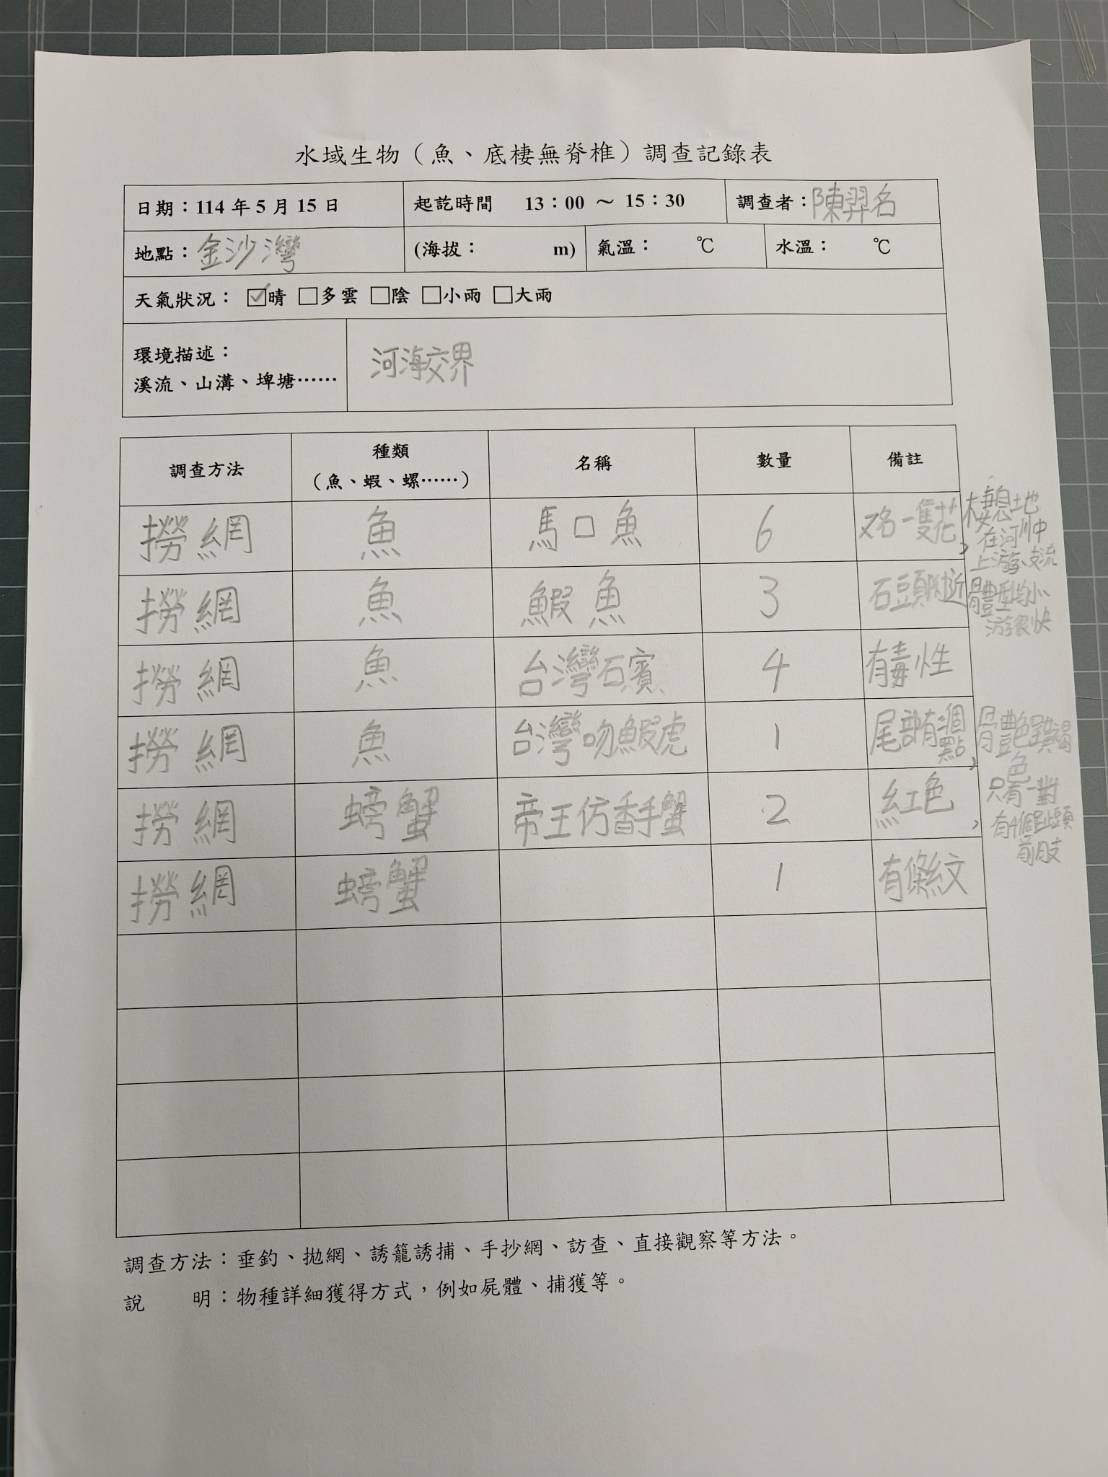 水域生物（魚、底棲無脊椎）調查記錄表
日期：114 年 5 月 15 日 起訖時間 13：00 ～ 15：30 調查者：陳羿名
地點：金沙灣 (海拔： m) 氣溫： ℃ 水溫： ℃
天氣狀況： ☑晴 □多雲 □陰 □小雨 □大雨
環境描述：
溪流、山溝、埤塘…… 河海交界
調查方法 種類 名稱 數量 備註
（魚、蝦、螺……）
撈網 魚 馬口魚 6 又名一隻花, 棲息地
在河川中
上游、支流
撈網 魚 鰕魚 3 石頭附近 體型均小
游很快
撈網 魚 台灣石賓 4 有毒性
撈網 魚 台灣吻鰕虎 1 尾部有個點,
色
撈網 螃蟹 帝王仿香手蟹 2 紅色, 只有一對
撈網 螃蟹 1 有條紋
調查方法：垂釣、拋網、誘籠誘捕、手抄網、訪查、直接觀察等方法。
說 明：物種詳細獲得方式，例如屍體、捕獲等。